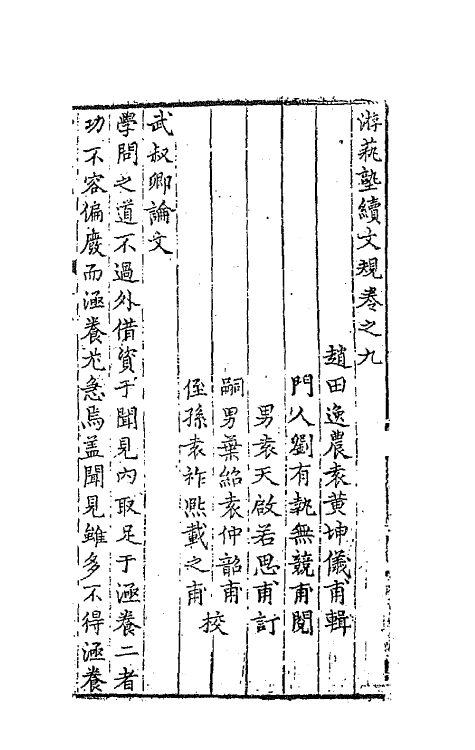 游蓺塾續文規卷之九
趙田逸農袁黃坤儀甫輯
門人劉有執無競甫閱
男袁天啟若思甫訂
嗣男葉紹袁仲韶甫
侄孫袁祚熈載之甫
校
武叔卿論文
學問之道不過外借資于聞見內取足于涵養二者
功不容偏廢而涵養尤急焉盖聞見雖多不得涵養